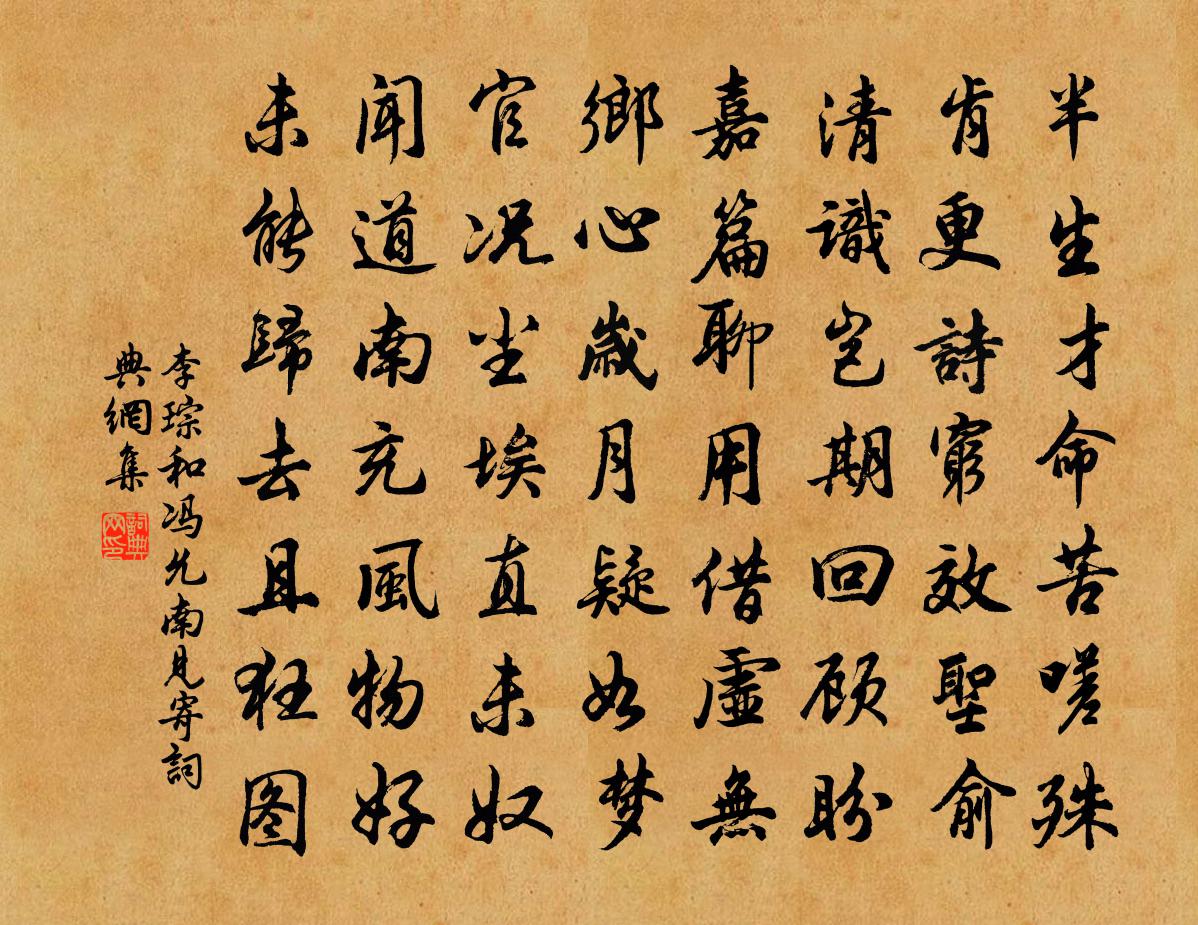 半生才命苦嗟殊
肯更詩窮效聖俞
清識岂期回顾盼
嘉篇聊用借虛無
鄉心歲月疑如梦
官况尘埃直未奴
闻道南充風物好
未能歸去且狂图
李琮和冯允南見寄詞
典網集
詞典网印